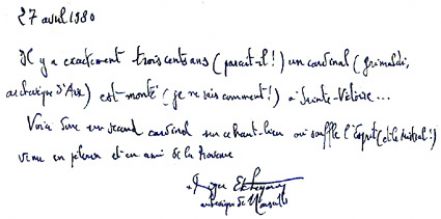 27 avril 1980
Il y a exactement trois cents ans (paraît-il !) un cardinal (Grimaldi,
archevêque d'Aix) est monté (je ne sais comment !) à Sainte-Victoire...
Voici donc un second cardinal sur ce haut-lieu où souffle l'Esprit (et le mistral !)
venu en pèlerin et en ami de la Provence
+ Roger Etchegaray
archevêque de Marseille